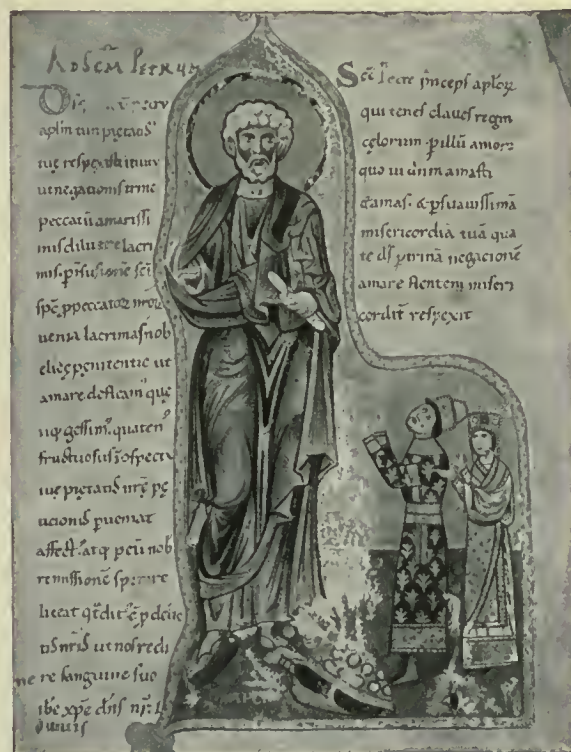 AD SCM PETRUM
aplm tuū pietatis
tuę respexisti
ut negationis trine
peccatū amarissi
mis dilueret lacri
mis p infusionē sci
spc p peccatoꝝ
uenia lacrimas nob
penitentie ut
amare defleam que
gessim quaten
fructuosus
tuę pietatis nrę pę
ticionis pueniat
affect atq nob
remissionē sperare
liceat
nris ut nos redi
meret sanguine suo
ihc xpc dns nr
Sce Petre princeps aploꝝ
qui tenes claues regni
cęlorum p illū amorē
quo dnm amasti
& amas & p suauissimā
misericordiā tuā qua
te ds p trinā negacionē
amare flentem miseri
cordit respexit